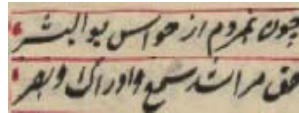 چون بمردم از حواس بوالبشر
حق مرا شد سمع و ادراک و بصر